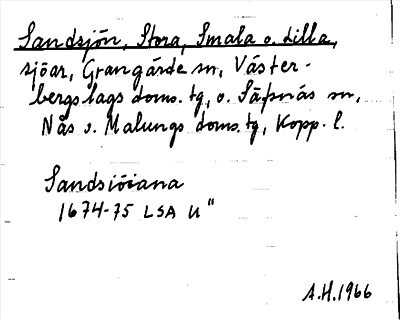 Sandsjön, Stora, Smala o. Lilla,
sjöar, Grangärde sn, Väster-
bergslags doms. tg, o. Säfsnäs sn,
Nås o. Malungs doms. tg, Kopp. l.
Sandsiöiana
1674-75 LSA U"
A.H. 1966